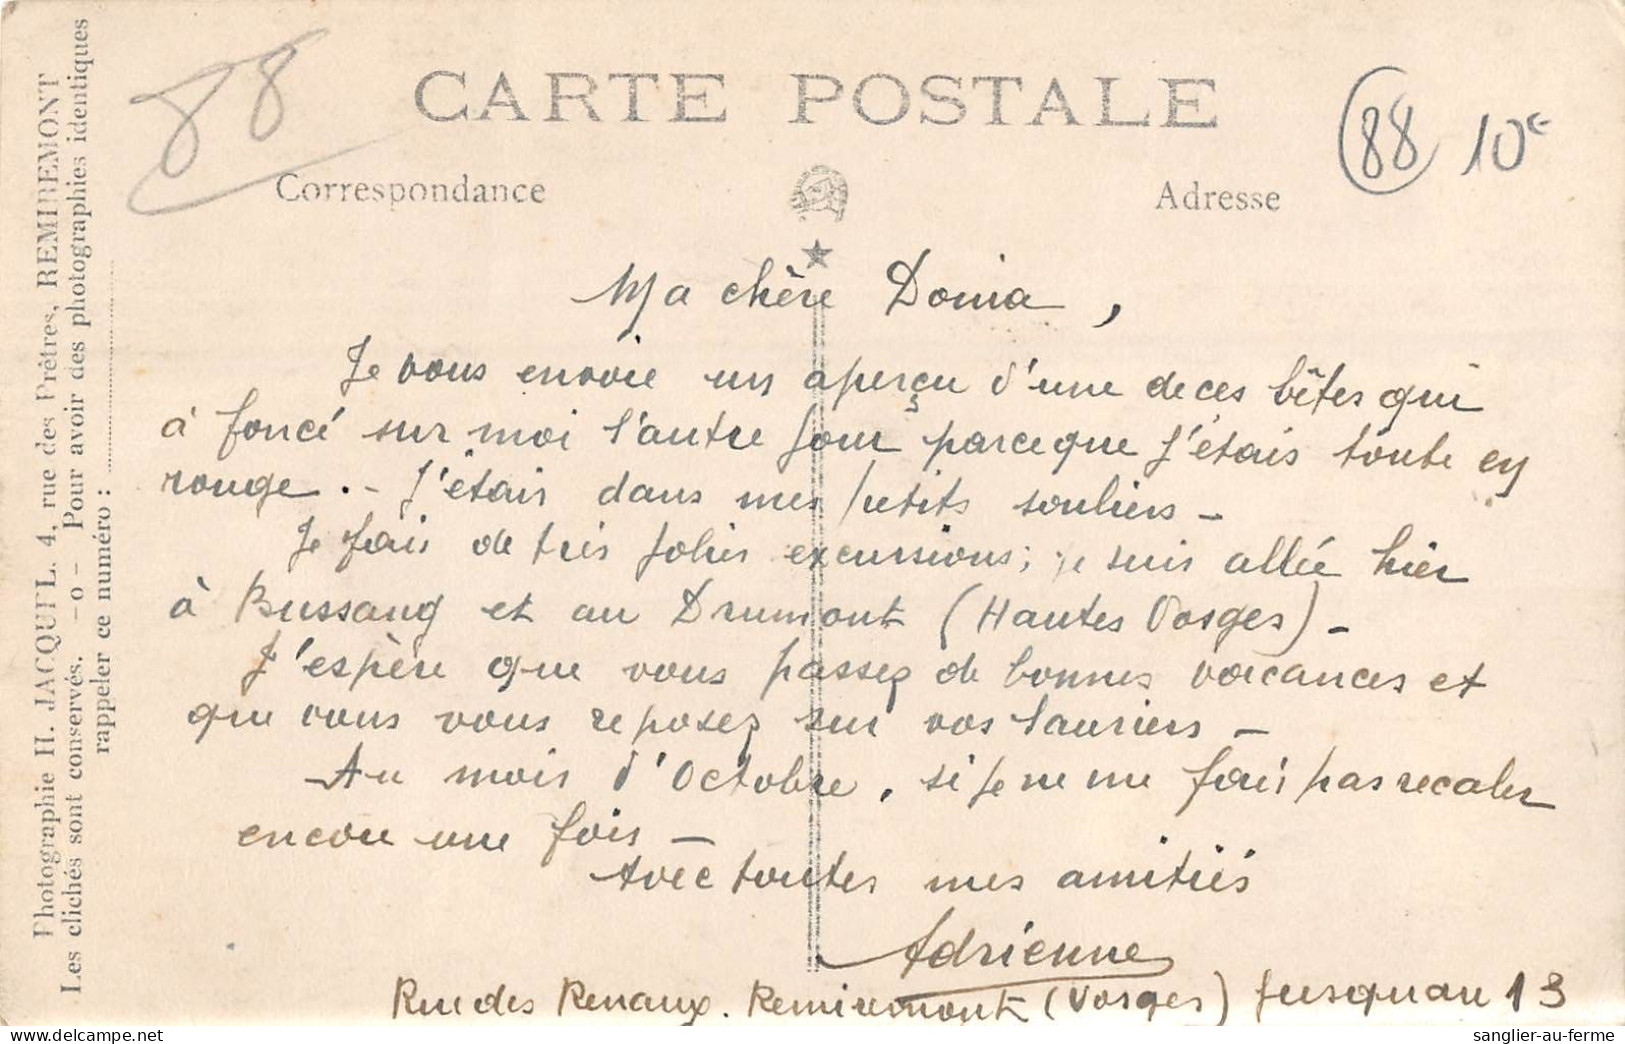 CARTE POSTALE
88
88 10€
Correspondance
Adresse
Photographie H. JACQUEL. 4, rue des Prêtres, REMIREMONT
Les clichés sont conservés. -o- Pour avoir des photographies identiques
rappeler ce numéro :
Ma chère Donia,
Je vous envoie un aperçu d'une de ces bêtes qui
à foncé sur moi l'autre jour parceque j'étais toute en
rouge. - J'étais dans mes petits souliers -
Je fais de très jolies excursions; je suis allée hier
à Bussang et au Drumont (Hautes Vosges) -
J'espère que vous passez de bonnes vacances et
que vous vous reposez sur vos lauriers -
Au mois d'Octobre, si je ne me fais pas recaler
encore une fois -
Avec toutes mes amitiés
Adrienne
Rue des Renaux. Remiremont (Vosges) jusqu'au 13
delcampe.net
sanglier-au-ferme